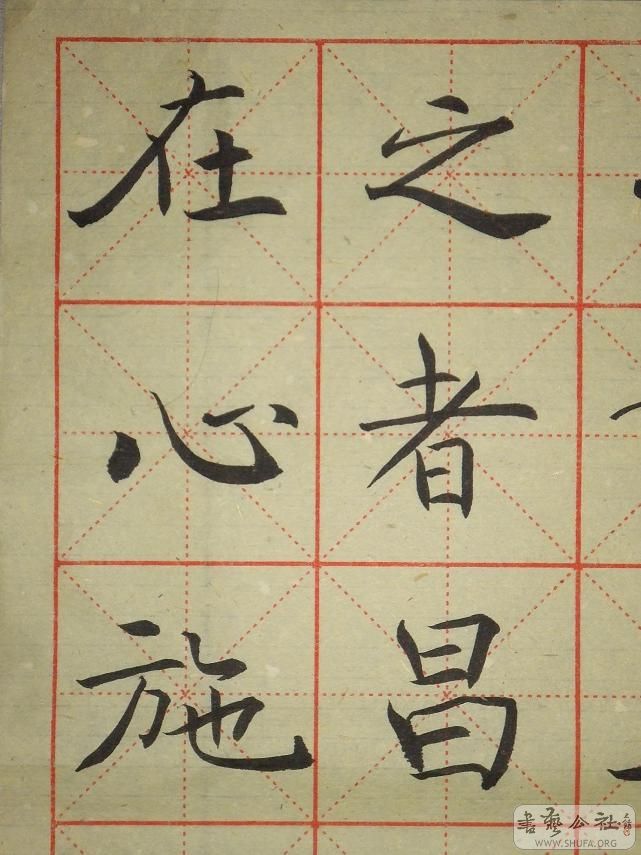 之者昌
在心施
書藝公社
WWW.SHUFA.ORG